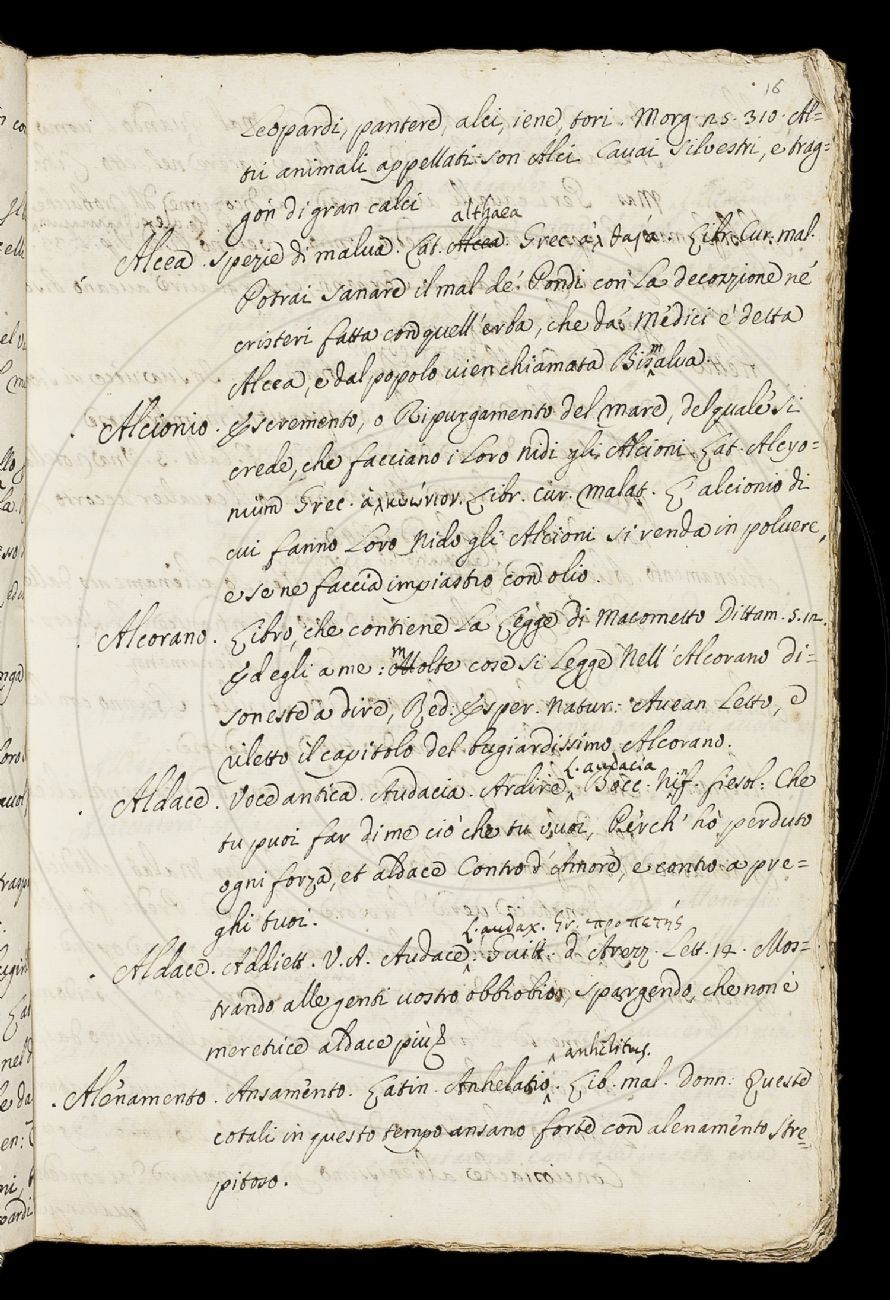 16
Leopardi, pantere, alci, iene, tori. Morg. ns. 310. Al=
tri animali appellati son Alci Cavai silvestri, e trag=
gon di gran calci
althaea
Alcea. Spezie di malva. Lat. Alcea. Grec. Libr. Cur. mal.
Potrai sanare il mal de' Pondi con la decozzione ne'
cristeri fatta con quell'erba, che da' Medici e' detta
Alcea, e dal popolo vien chiamata Bismalva.
Alcionio. Escremento, o Ripurgamento del mare, del quale si
crede, che facciano i Loro nidi gli Alcioni. Lat. Alcyo=
nium Grec. ἀλκυώνιον. Libr. cur. malat. L'alcionio di
cui fanno Loro Nido gli Alcioni si renda in polvere,
e se ne faccia impiastro con olio.
Alcorano. Libro, che contiene La Legge di Macometto Dittam. 5. 12.
Ed egli a me: Molte cose si Legge Nell'Alcorano di=
soneste a dire, Red. Esper. Natur. Avean Letto, e
riletto il capitolo del bugiardissimo Alcorano.
L. audacia
Aldace. Voce antica. Audacia. Ardire. Bocc. Nif. fiesol: Che
tu puoi far di me ciò che tu vuoi, Perch' hò perduto
ogni forza, et aldace Contro d'Amore, e contro a pre=
ghi tuoi.
L. audax. Gr. προπετής
Aldace. Addiett. V. A. Audace. Guitt. d'Arezz. Lett. 14. Mos=
trando alle genti vostro obbrobrio, spargendo, che non è
meretrice aldace più
anhelitus.
Alenamento. Ansamento. Latin. Anhelatio. Lib. mal. donn: Queste
cotali in questo tempo ansano forte con alenamento stre=
pitoso.